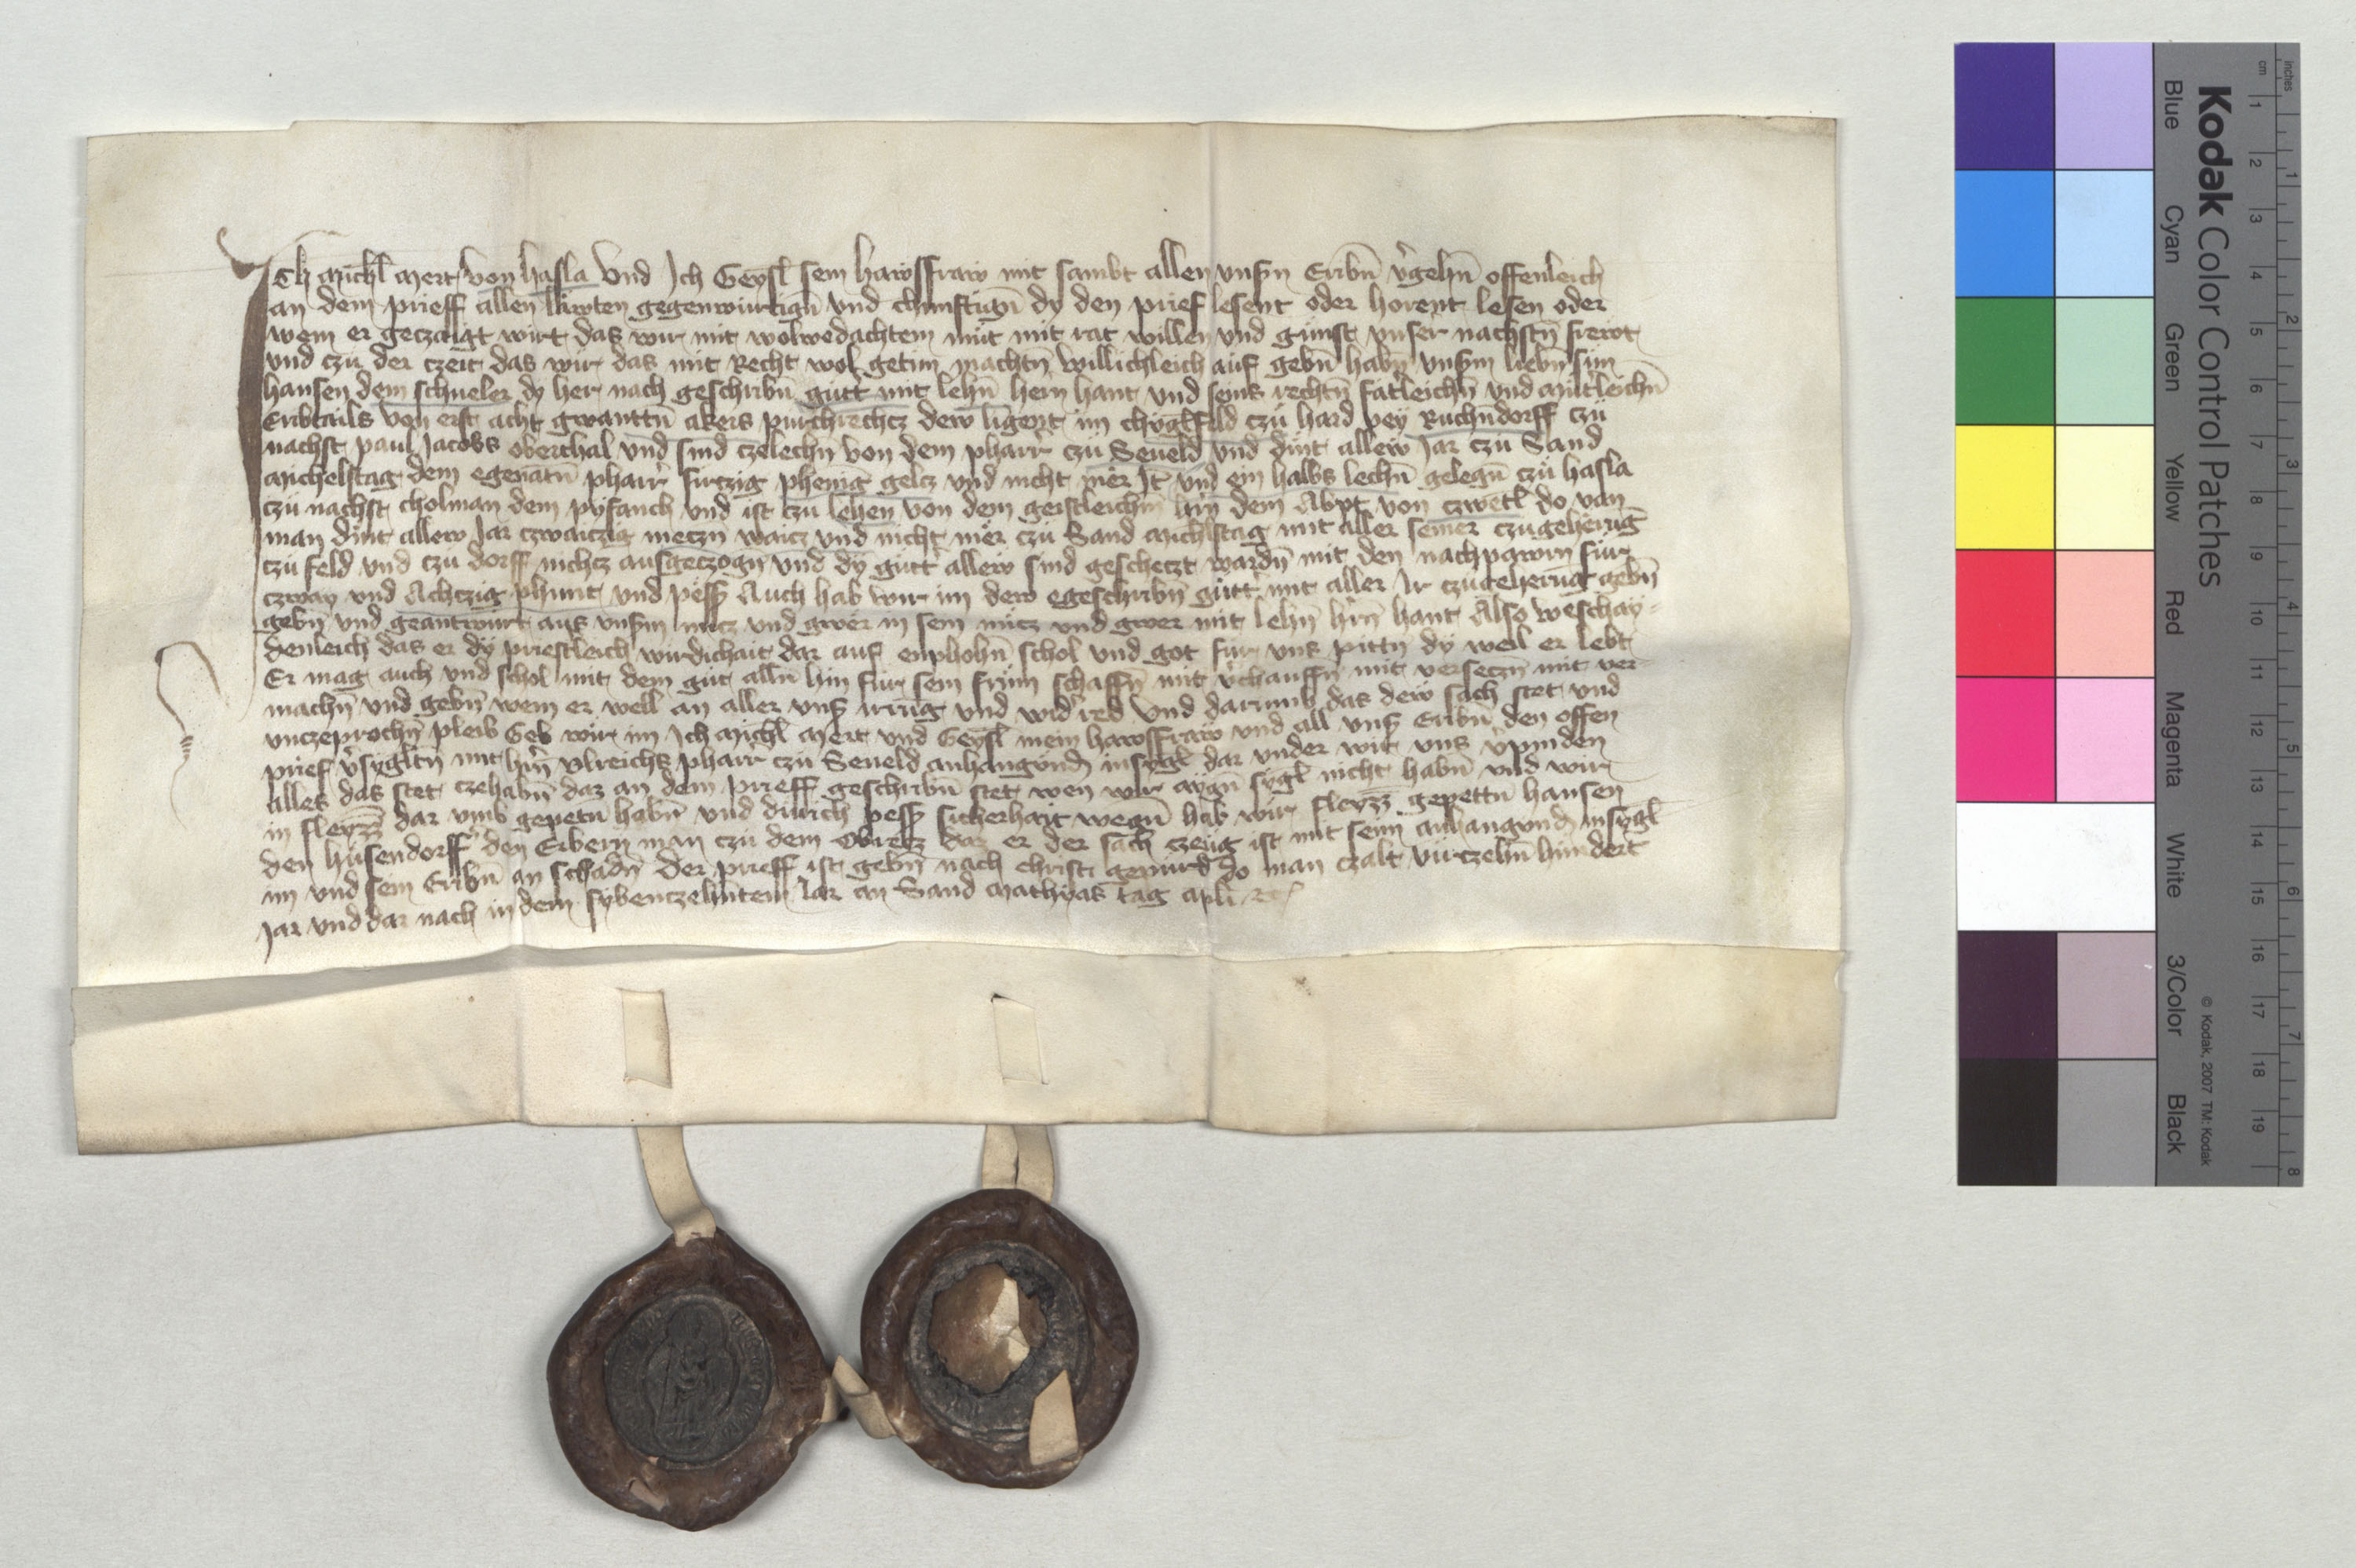 Ich Michl Mert von hasla vnd Ich Geysl sein hawsfraw mit sambt allen vnsern Eribn v̉gehn̄ offenleich
an dem prieff allen läwten gegenwürtign̄ vnd chunftign̄ dy den prief lesent oder horent lesen oder
wem er geczaigt wirt das wir mit wolwedachtem müt mit rat willen vnd günst vnser nachstn̄ frewt
vnd czü der czeit das wir das mit Recht wol getün machtn̄ willichleich auf gebn̄ habn̄ vnserm liebn̄ sün
hansen dem schueler dy her nach geschribn̄ gütt mit lehn̄ hern hant vnd seins rechtn̄ fätleichn̄ vnd mütleichn̄
Eribtails von erst acht gwanttn̄ akers purchrechcz dew ligent im chöglfeld czü hard pey Ruchndorff czü
nachst paul Jacobs oberthal vnd sind czelechn̄ von dem pharr̉ czü Seueld vnd dint allew Jar czü Sand
Michelstag dem egenātn̄ pharr̉ firczig phenīg gelcz vnd nicht mer It̄ vnd ein halbs lechn̄ gelegn̄ czü hasla
czü nachst cholman dem pyfanch vnd ist czü lehen von dem geistleichm̄ hrn̄ dem Abpt von czwetl do von
man dint allew Jar czwaiczig meczn̄ waicz vnd nicht mer czü Sand Michlstag mit aller seiner czugehörūg
czü feld vnd czü dorff nichcz ausgeczogn̄ vnd dy gütt allew sind geschetzt wardn̄ mit den nachpawrn für
czway vnd Achczig phunt vnd pess Auch hab wir im dew egeschribn̄ gütt mit aller Ir czugeherūg gebn̄
gebn̄ vnd geantwurt aus vnserm nücz vnd gwer in sein nücz vnd gwer mit lehn̄ hrn̄ hant Also weschay=
denleich das er dy priestleich wirdichait dar auf enphohn̄ schol vnd got für vns pittn̄ dy weil er lebt
Er mag auch vnd schol mit dem güt alln̄ hin für sein frūm schaffn̄ mit v̉chauffn̄ mit verseczn̄ mit ver
machn̄ vnd gebn̄ wem er well an aller vnser irrūg vnd wid̉red vnd darumb das dew sach stet vnd
vnczeprochn̄ pleib Geb wir im Ich Michl Mert vnd Geysl mein hawsfraw vnd all vnser Eribn̄ den offen
prief v̉sygltn̄ mit hrn̄ vlreichs pharr̉ czü Seueld anhangundn̄ insygl dar vnder wir vns v̉pinden
alles das stet czehabn̄ daz an dem prieff geschribn̄ stet wen wir aygn̄ sygl nicht habn̄ vnd wir
in fleyzz dar vmb gepetn̄ habn̄ vnd durich pess sicherhait wegn̄ hab wir fleyzz gepettn̄ hansen
den hüsendorff̉ den Erbern man czü dem Obretz das er der sach czeüg ist mit seim anhangundn̄ insygl
im vnd sein Eribn̄ an schadn̄ Der prieff ist gebn̄ nach christi gepürd do man czalt virczehn̄ hundert
Jar vnd dar nach in dem sybenczehntem Jar an Sand Mathyas tag apli etc
Kodak Color Control Patches
Blue Cyan Green Yellow Red Magenta White 3/Color Black
© Kodak, 2007 TM: Kodak
cm 1 2 3 4 5 6 7 8 9 10 11 12 13 14 15 16 17 18 19
inches 1 2 3 4 5 6 7 8